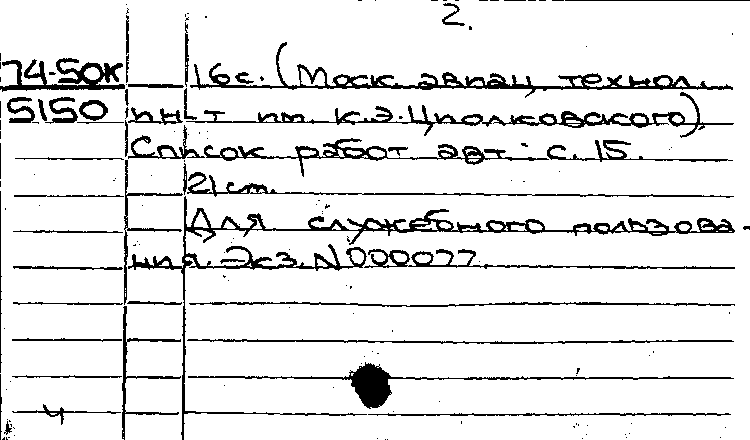 2.
74-50К 16с. (Моск. авиац. технол.
5150 ин-т им. К.Э.Циолковского).
Список работ авт.: с. 15.
21 см.
Для служебного пользова-
ния. Экз. N 000077.
4